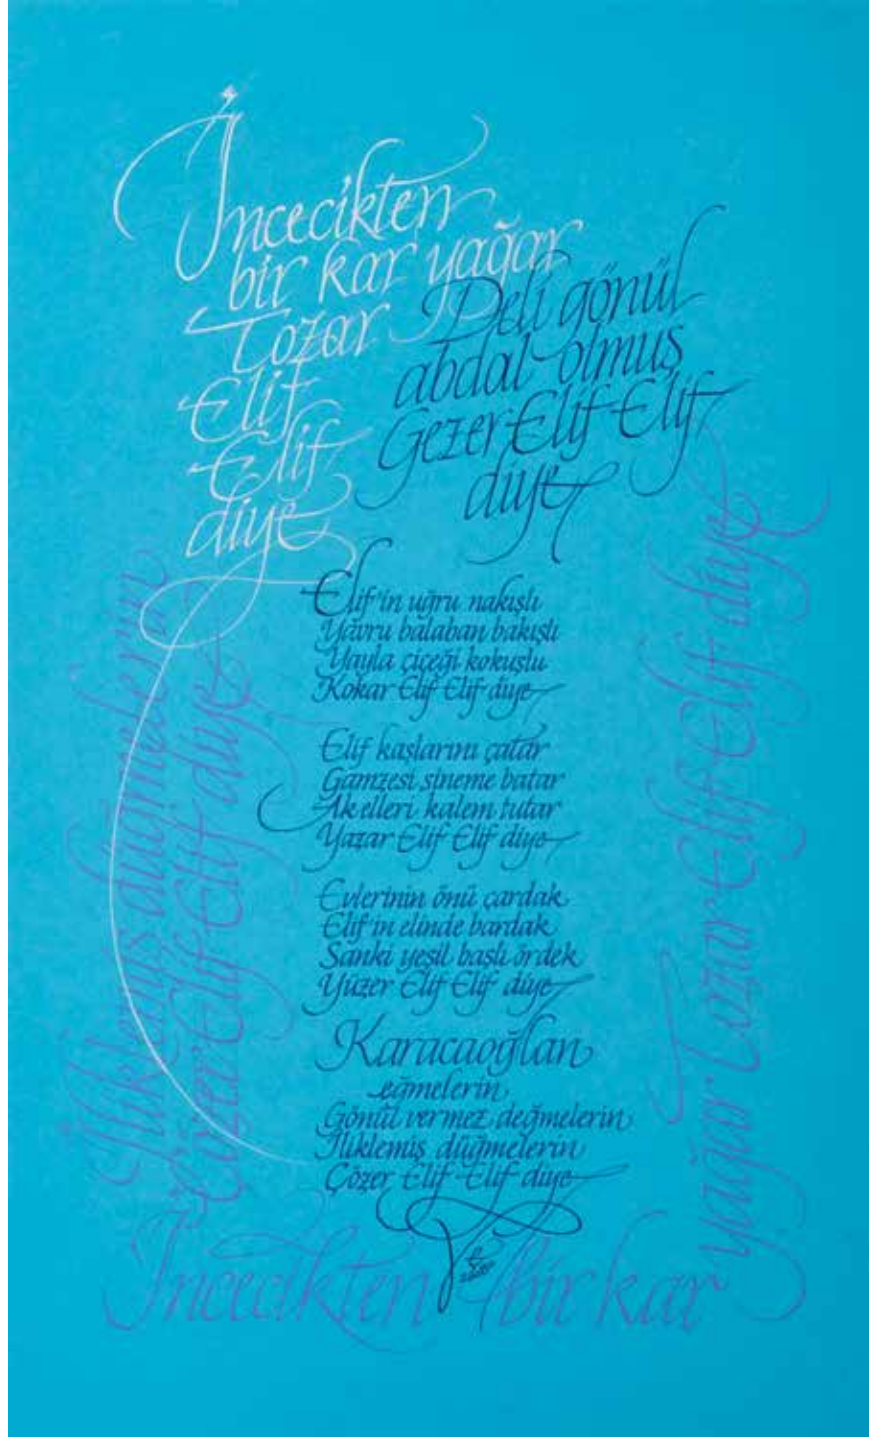 İncecikten
bir kar yağar
Tozar
Elif
Elif
diye
Deli gönül
abdal olmuş
Gezer Elif Elif
diye
Elif'in uğru nakışlı
Yavru balaban bakışlı
Yayla çiçeği kokuşlu
Kokar Elif Elif diye
Elif kaşlarını çatar
Gamzesi sineme batar
Ak elleri kalem tutar
Yazar Elif Elif diye
Evlerinin önü çardak
Elif'in elinde bardak
Sanki yeşil başlı ördek
Yüzer Elif Elif diye
Karacaoğlan
eğmelerin
Gönül vermez değmelerin
İliklemiş düğmelerin
Çözer Elif Elif diye
İliklemiş düğmelerin
Çözer Elif Elif diye
İncecikten bir kar
yağar Tozar Elif Elif diye